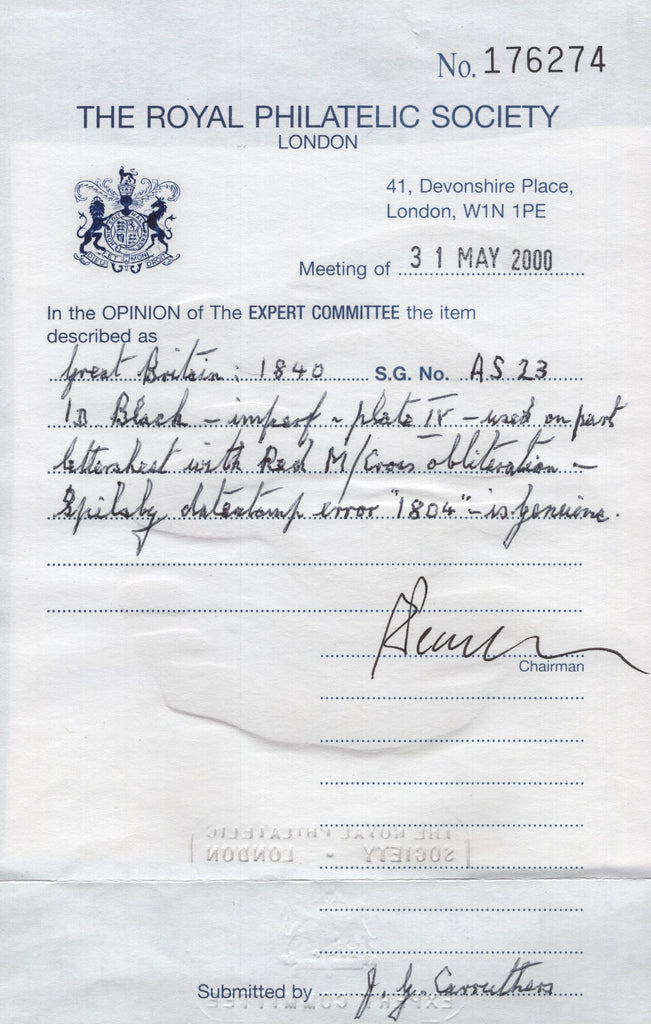 No. 176274
THE ROYAL PHILATELIC SOCIETY
LONDON
41, Devonshire Place,
London, W1N 1PE
Meeting of 31 MAY 2000
In the OPINION of The EXPERT COMMITTEE the item
described as
Great Britain: 1840 S.G. No. AS 23
1D Black – imperf – plate IV – used on part
lettersheet with Red M/Cross obliteration –
Spilsby datestamp error "1804" – is genuine.
Chairman
THE ROYAL PHILATELIC
SOCIETY • LONDON
Submitted by J. G. Carruthers
EXPERT COMMITTEE